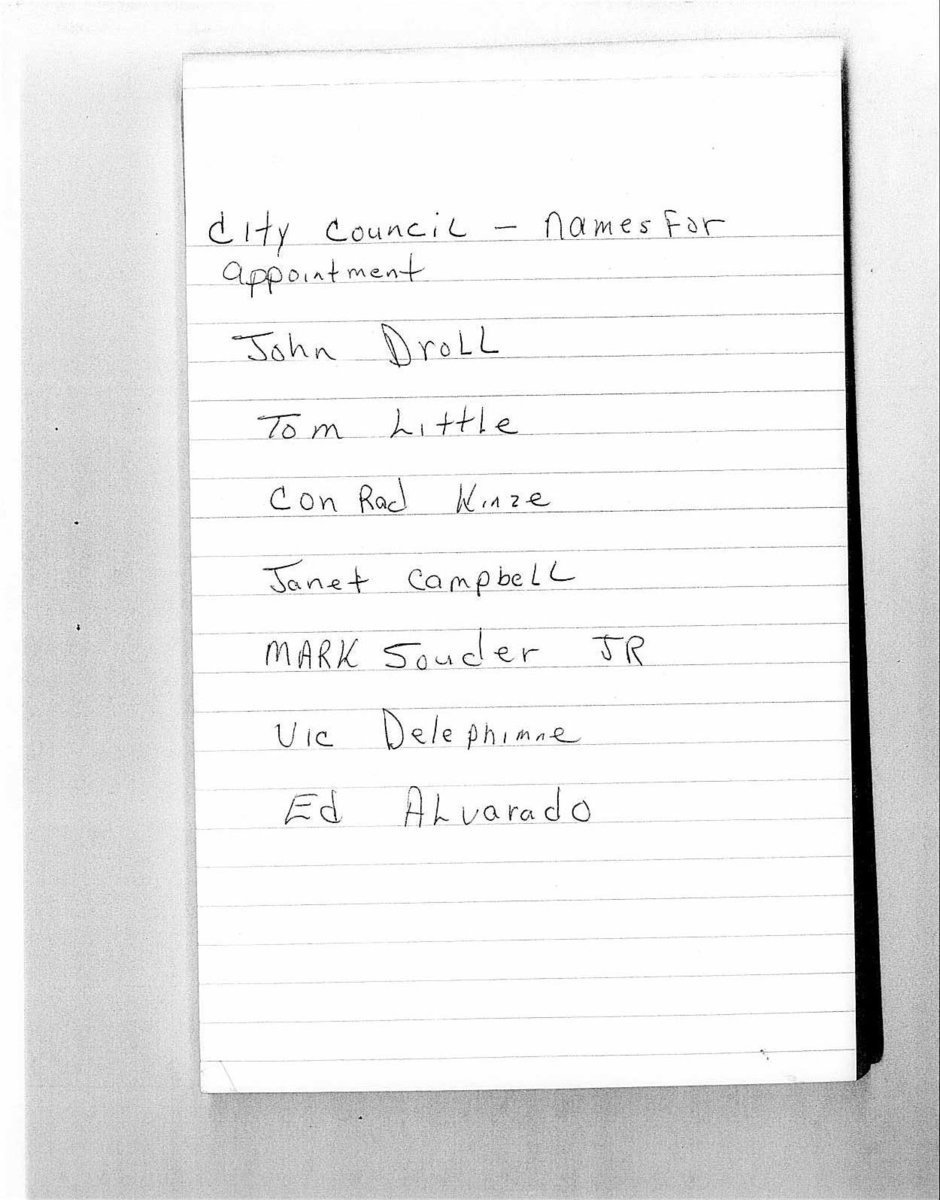 City Council - Names For
appointment
John Droll
Tom Little
Conrad Kinze
Janet Campbell
MARK Souder JR
Vic Delephimne
Ed Alvarado